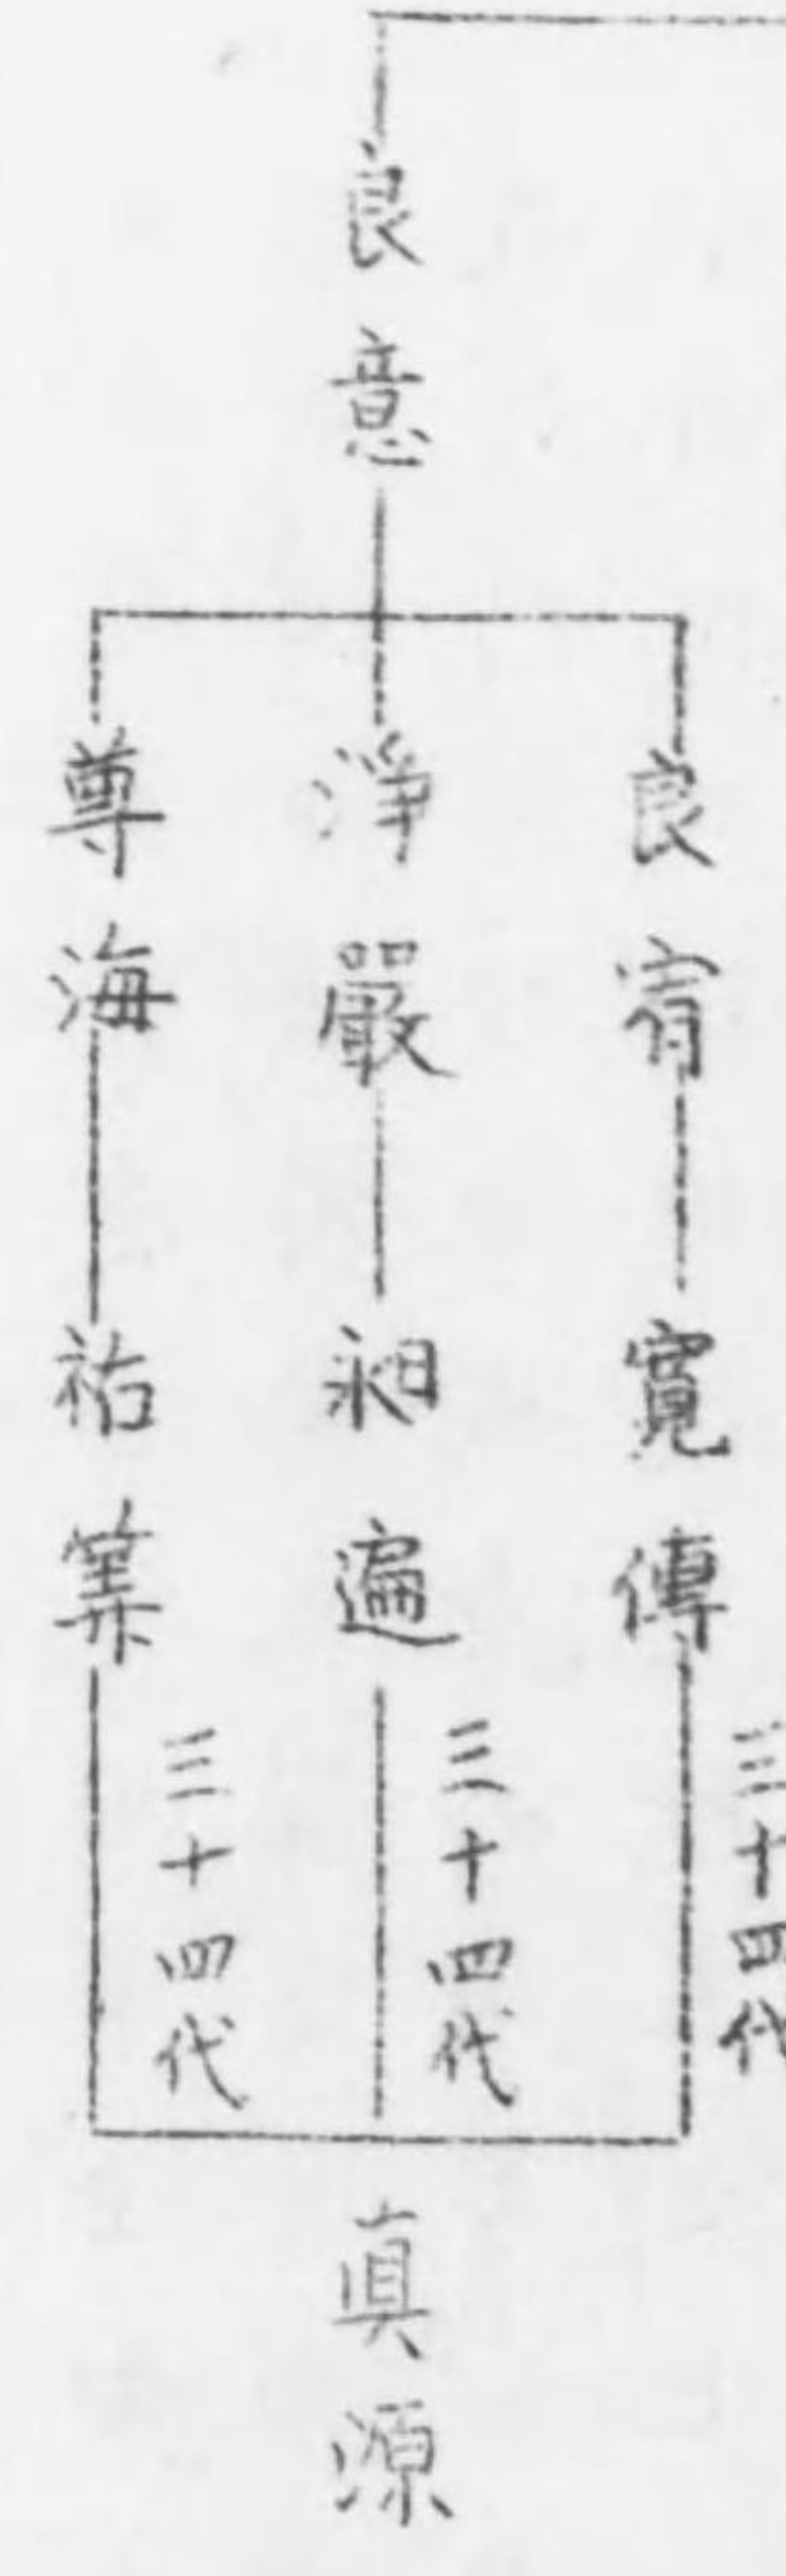 良意
良宥
寛傳
三十四代
淨嚴
昶遍
三十四代
尊海
祐筭
三十四代
眞源